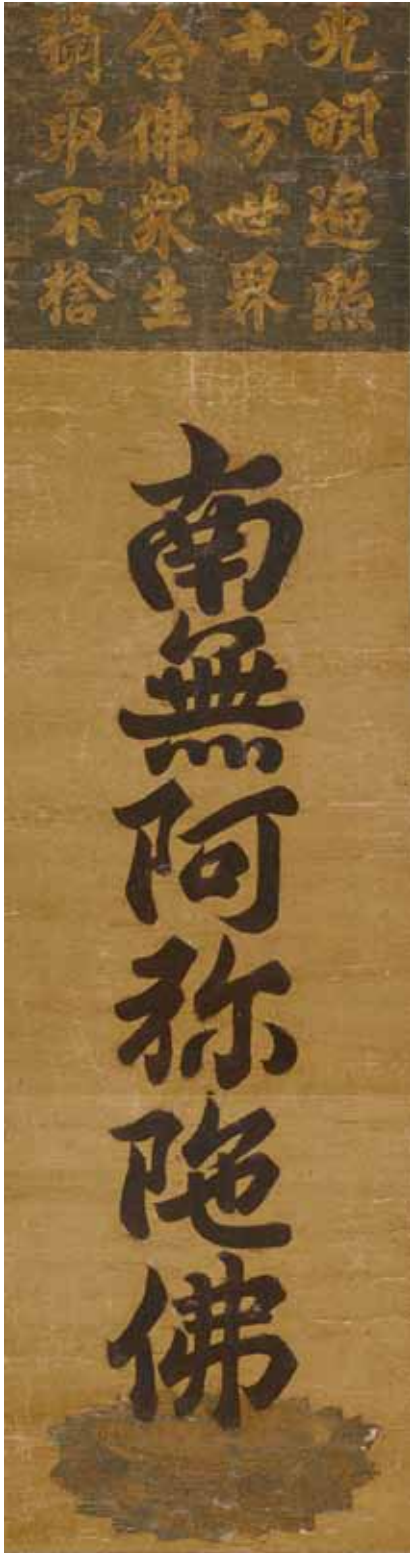 光明遍照
十方世界
念佛衆生
攝取不捨
南無阿弥陁佛